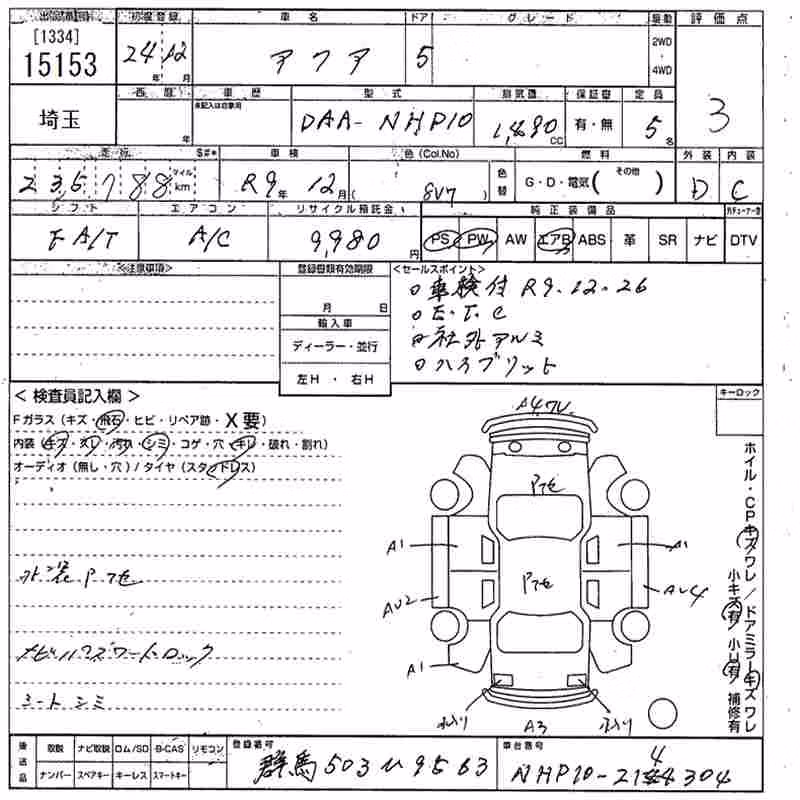 出品番号 初度登録 車名 ドア グレード 駆動 評価点
[1334]
15153 24年12月 アクア 5 2WD・4WD 3
埼玉 西暦 年 車歴 未記入は自家用 型式 DAA-NHP10 排気量 1,490cc 保証書 有・無 定員 5名
走行 S#* 車検 色(Col.No) 色替 燃料 外装 内装
235,788 マイル km R9年12月( 8V7 ) G・D・電気( その他 ) D C
シフト エアコン リサイクル預託金 純正装備品
FA/T A/C 9,980円 PS PW AW エアB ABS 革 SR ナビ DTV
<注意事項> 登録書類有効期限 <セールスポイント>
月 日
輸入車
ディーラー・並行
左H・右H
○車検付 R9.12.26
○E.T.C
○社外アルミ
○ハイブリット
<検査員記入欄>
Fガラス(キズ・飛石・ヒビ・リペア跡・X要)
内装(キズ・スレ・汚れ・シミ・コゲ・穴・キレ・破れ・割れ)
オーディオ(無し・穴)/タイヤ(スタッドレス)
外装Pアセ
ナビパスワードロック
シートシミ
キーロック
ホイル・CPキズワレ/ドアミラーキズワレ
小キズ有 小U有 補修有
Pアセ
A1 A1
Pアセ
AU2 AU4
A1
A3
後送品 取説 ナビ取説 ロム/SD B-CAS リモコン
ナンバー スペアキー キーレス スマートキー
登録番号 群馬503 9563
車台番号